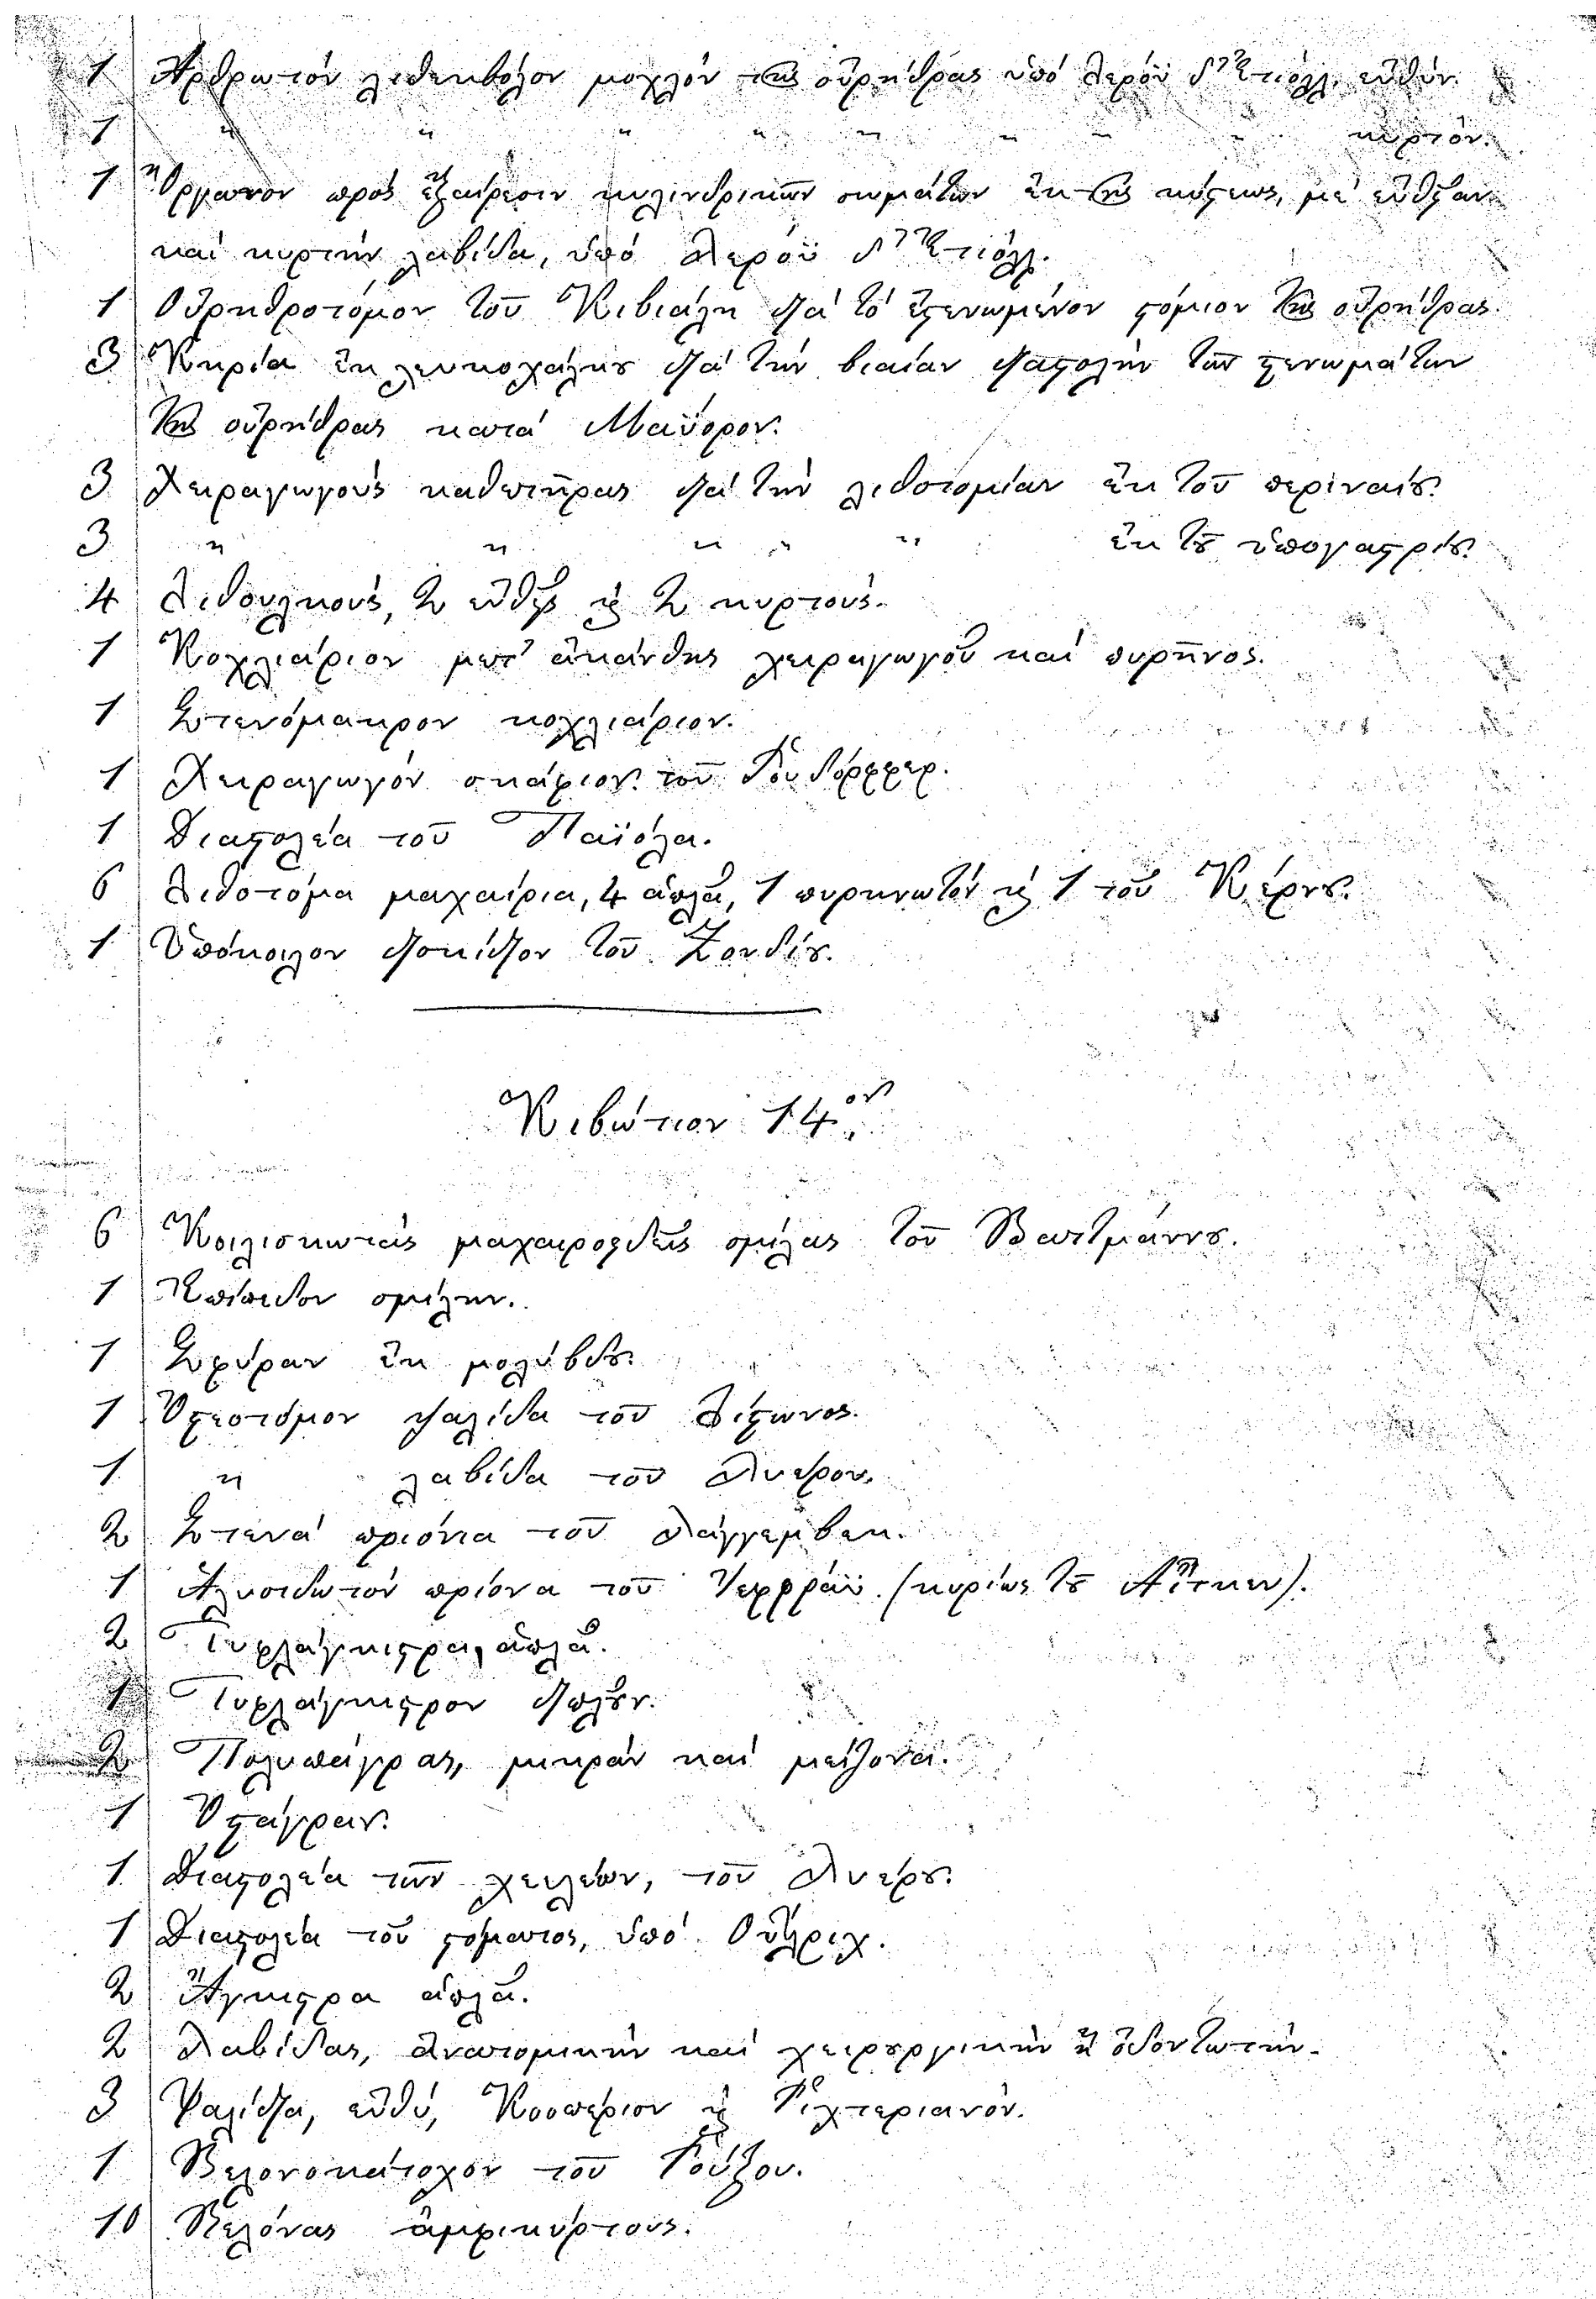 1 Ἀρθρωτόν λιθεκβόλον μοχλόν τῆς οὐρήθρας ὑπό Λερόϋ δ' Ἐτιόλλ, εὐθύν.
1 " " " " " " " " κυρτόν.
1 Ὄργανον πρός ἐξαίρεσιν κυλινδρικῶν σωμάτων ἐκ τῆς κύστεως, μέ εὐθεῖαν
καί κυρτήν λαβίδα, ὑπό Λερόϋ δ' Ἐτιόλλ.
1 Οὐρηθροτόμον τοῦ Κιβιάλη διά τό ἐστενωμένον στόμιον τῆς οὐρήθρας.
3 Κηρία ἐκ λευκοχάλκου διά τήν βιαίαν διαστολήν τῶν στενωμάτων
τῆς οὐρήθρας κατά Μαϋόρον.
3 Χειραγωγούς καθετῆρας διά τήν λιθοτομίαν ἐκ τοῦ περιναίου.
3 " " " " " ἐκ τοῦ ὑπογαστρίου.
4 Λιθουλκούς, 2 εὐθεῖς καὶ 2 κυρτούς.
1 Κοχλιάριον μετ' ἀκάνθης χειραγωγοῦ καί πυρῆνος.
1 Στενόμακρον κοχλιάριον.
1 Χειραγωγόν σκάφιον τοῦ Ῥουδόρφφερ.
1 Διαστολέα τοῦ Παϊόλα.
6 Λιθοτόμα μαχαίρια, 4 ἁπλᾶ, 1 πυρηνωτόν καὶ 1 τοῦ Κέρνου.
1 Ὑπόκοιλον δοκίδιον τοῦ Ζονδίου.
Κιβώτιον 14ον.
6 Κοιλισκωτάς μαχαιροειδεῖς σμίλας τοῦ Βαττμάννου.
1 Ἐπίπεδον σμίλην.
1 Σφύραν ἐκ μολύβδου.
1 Ὀστεοτόμον ψαλίδα τοῦ Λίστωνος.
1 " λαβίδα τοῦ Λυέρου.
2 Στενά πριόνια τοῦ Λάγγεμβεκ.
1 Ἁλυσιδωτόν πρίονα τοῦ Ἰεφφράϋ. (κυρίως τοῦ Ἄϊτκεν).
2 Τυφλάγκιστρα, ἁπλᾶ.
1 Τυφλάγκιστρον διπλοῦν.
2 Πολυπάγρας, μικράν καί μείζονα.
1 Ὀστάγραν.
1 Διαστολέα τῶν χειλέων, τοῦ Λυέρου.
1 Διαστολέα τοῦ στόματος, ὑπό Οὔλριχ.
2 Ἄγκιστρα ἁπλᾶ.
2 Λαβίδας, ἀνατομικήν καί χειρουργικήν ἤ ὀδοντωτήν.
3 Ψαλίδια, εὐθύ, Κοοπέριον καὶ Ῥιχτεριανόν.
1 Βελονοκάτοχον τοῦ Ῥούξου.
10 Βελόνας ἀμφικύρτους.